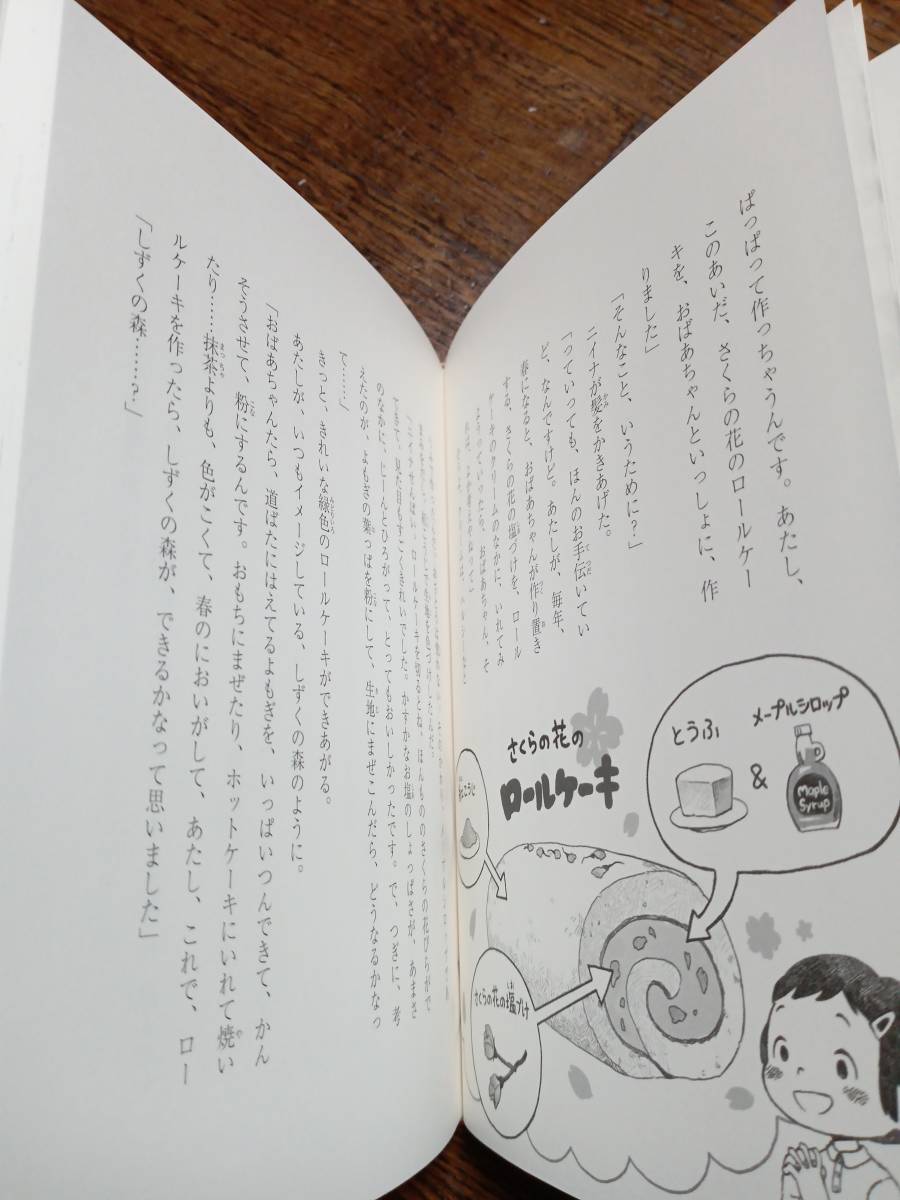 ぱっぱって作っちゃうんです。あたし、
このあいだ、さくらの花のロールケー
キを、おばあちゃんといっしょに、作
りました」
「そんなこと、いうために?」
ニイナが髪をかきあげた。
「っていっても、ほんのお手伝いてい
ど、なんですけど。あたしが、毎年、
春になると、おばあちゃんが作り置き
する、さくらの花の塩づけを、ロール
ケーキのクリームのなかに、いれてみ
ようっていったら、おばあちゃん、そ
さくらの花の
ロールケーキ
とうふ
&
メープルシロップ
Maple
Syrup
さくらの花の塩づけ
「ニイナせんぱい、ロールケーキを切るとね、ほんもののさくらの花びらがで
てきて、見た目もすごくきれいでした。かすかなお塩のしょっぱさが、あまさ
のなかに、じーんとひろがって、とってもおいしかったです。で、つぎに、考
えたのが、よもぎの葉っぱを粉にして、生地にまぜこんだら、どうなるかなっ
て……」
きっと、きれいな緑色のロールケーキができあがる。
あたしが、いつもイメージしている、しずくの森のように。
「おばあちゃんたら、道ばたにはえてるよもぎを、いっぱいつんできて、かん
そうさせて、粉にするんです。おもちにまぜたり、ホットケーキにいれて焼い
たり……抹茶よりも、色がこくて、春のにおいがして、あたし、これで、ロー
ルケーキを作ったら、しずくの森が、できるかなって思いました」
「しずくの森……?」